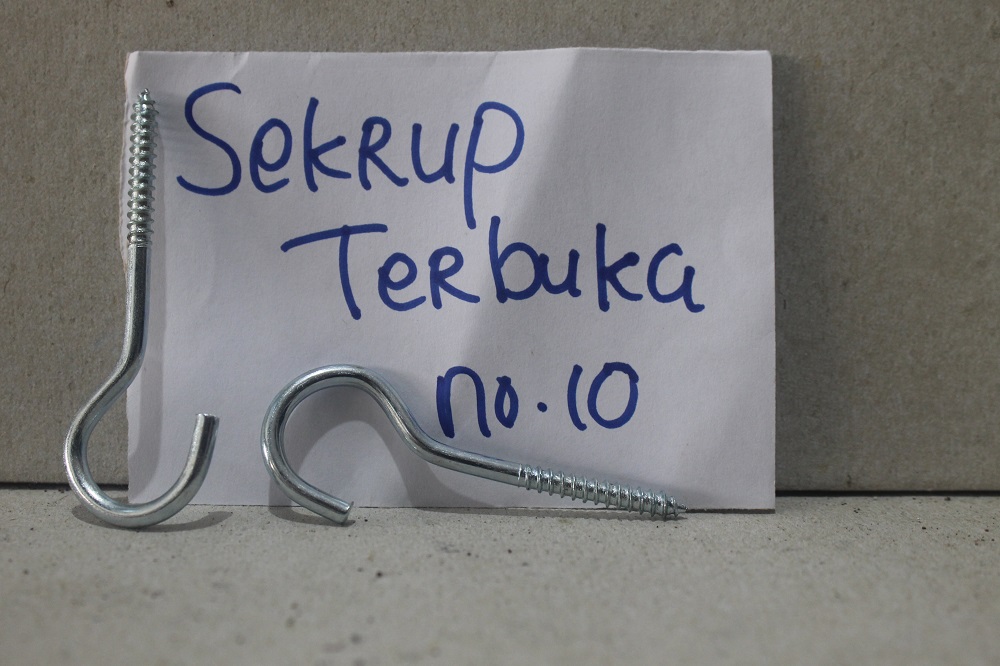 Sekrup
Terbuka
no.10